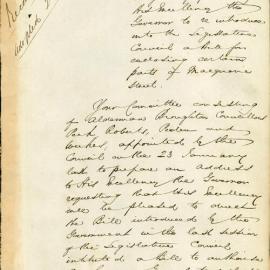 His Excellency the
Governor to re introduce
into the Legislative
Council a bill for
enclosing certain
parts of Macquarie
Street.
Your Committee consisting
of Alderman Broughton Councillors
Peek, Roberts,
appointed by the
Council on the 23 January
last to prepare an address
to His Excellency the Governor
requesting that His Excellency
will be pleased to direct
the Bill introduced by the
Government in the last session
of the Legislative Council
intituled a bill to authorise